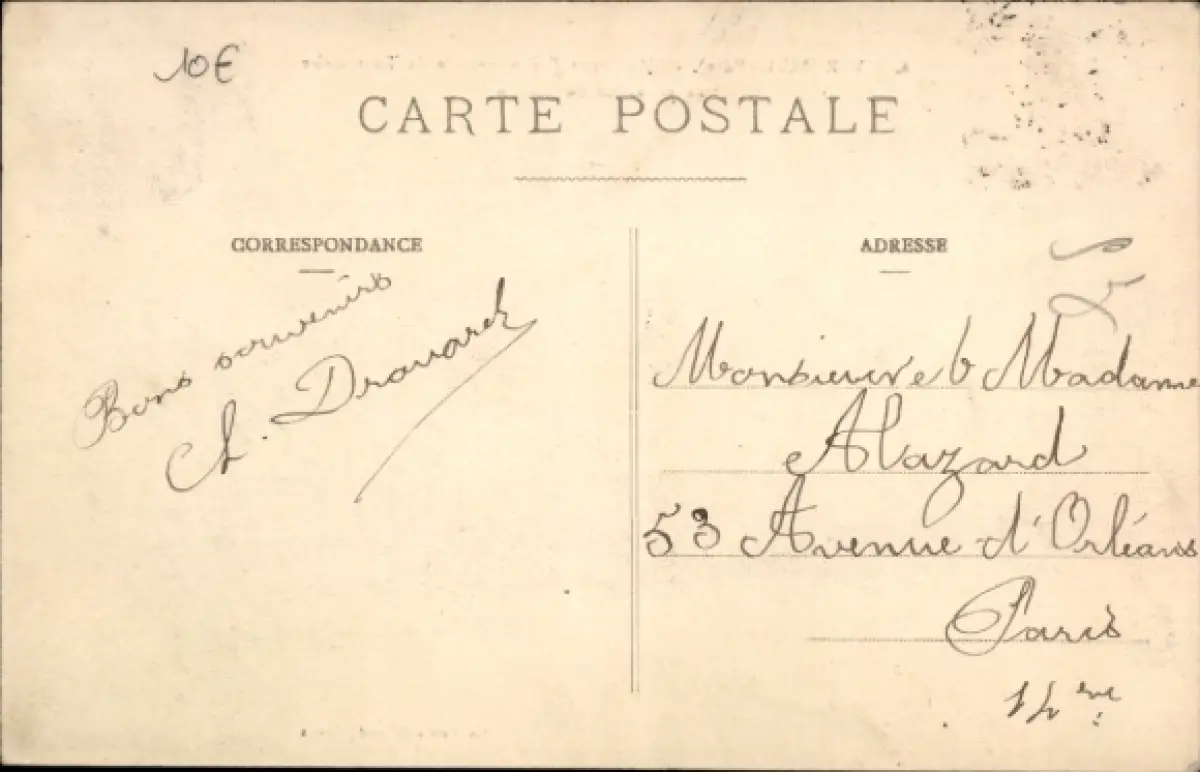 10€
CARTE POSTALE
CORRESPONDANCE
ADRESSE
Bons souvenirs
Monsieur et Madame
Alazard
53 Avenue d'Orléans
Paris
14 me